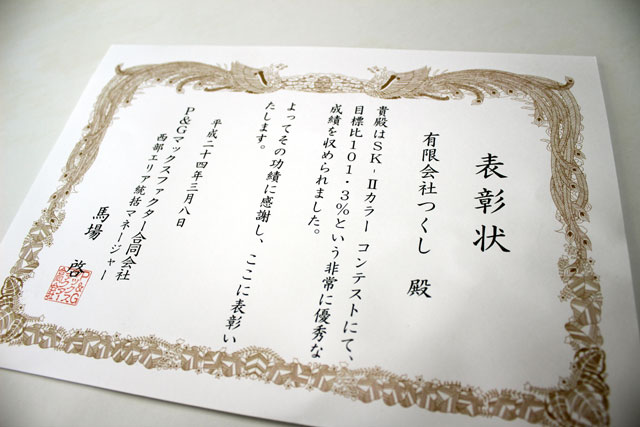 表彰状
有限会社つくし 殿
貴殿はSK-Ⅱカラー コンテストにて、
目標比101.3%という非常に優秀な
成績を収められました。
よってその功績に感謝し、ここに表彰い
たします。
平成二十四年三月八日
P&Gマックスファクター合同会社
西部エリア統括マネージャー
馬場 啓